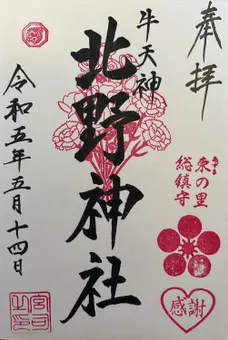 奉拝
牛天神
北野神社
令和五年五月十四日
東の里
総鎮守
感謝
宮司之印